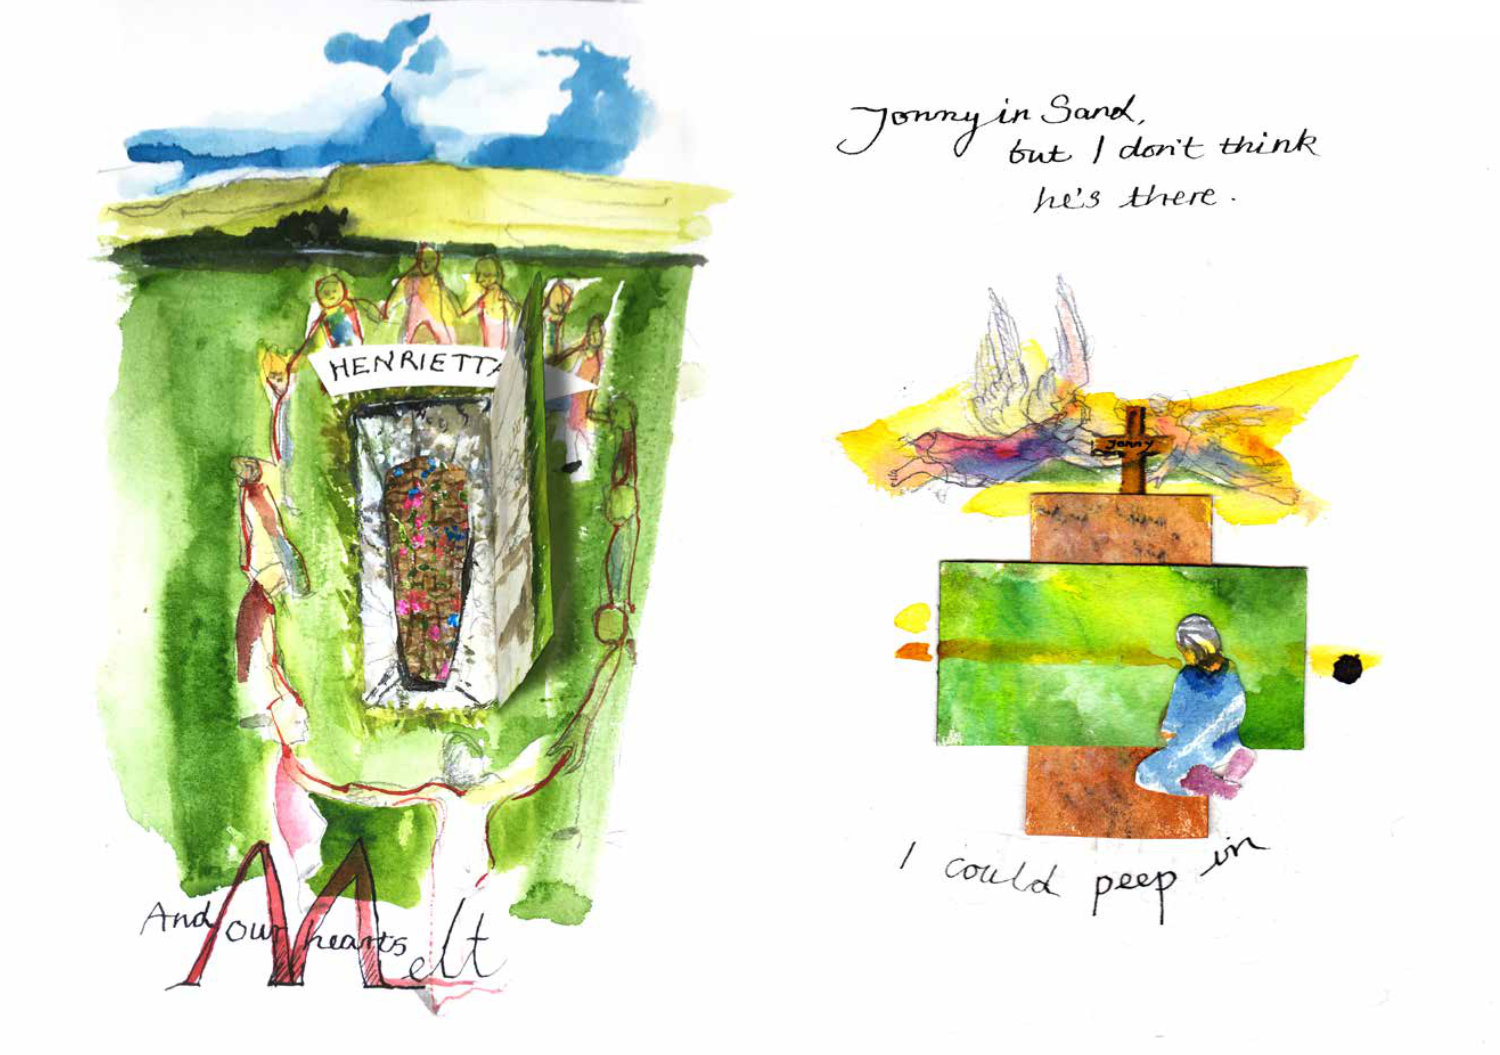 HENRIETTA
And our hearts Melt
Jonny in Sand,
but I don't think
he's there.
Jonny
I could peep in